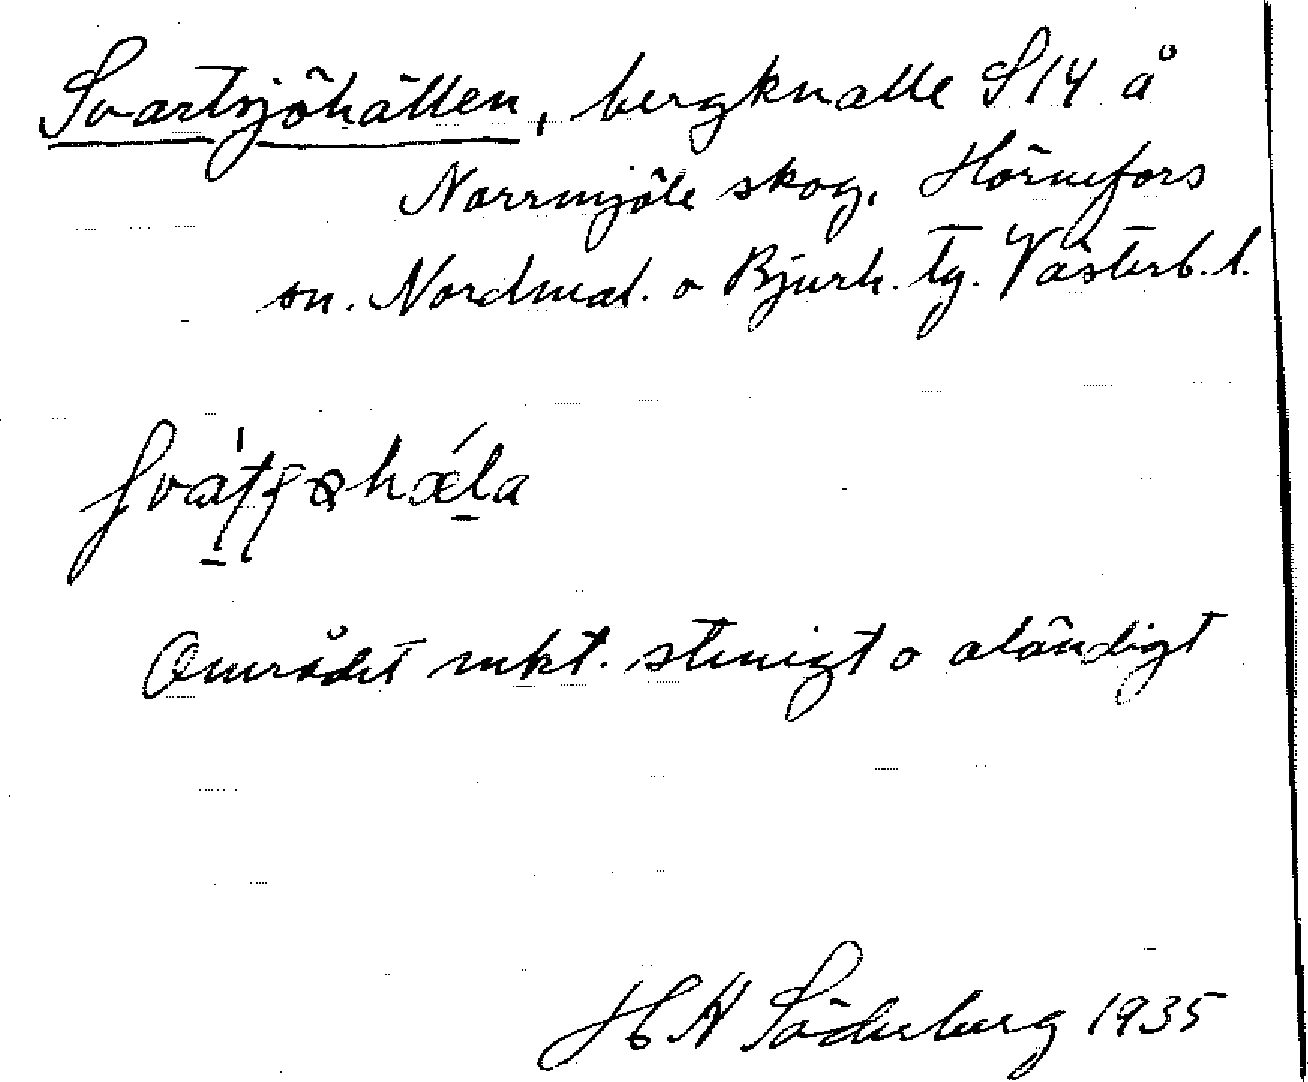 Svartsjöhällen, bergknalle S14 å
Norrmjöle skog, Hörnefors
sn. Nordmal. o Bjurh. tg. Västerb. l.
Området mkt. stenigt o oländigt
H A Söderberg 1935